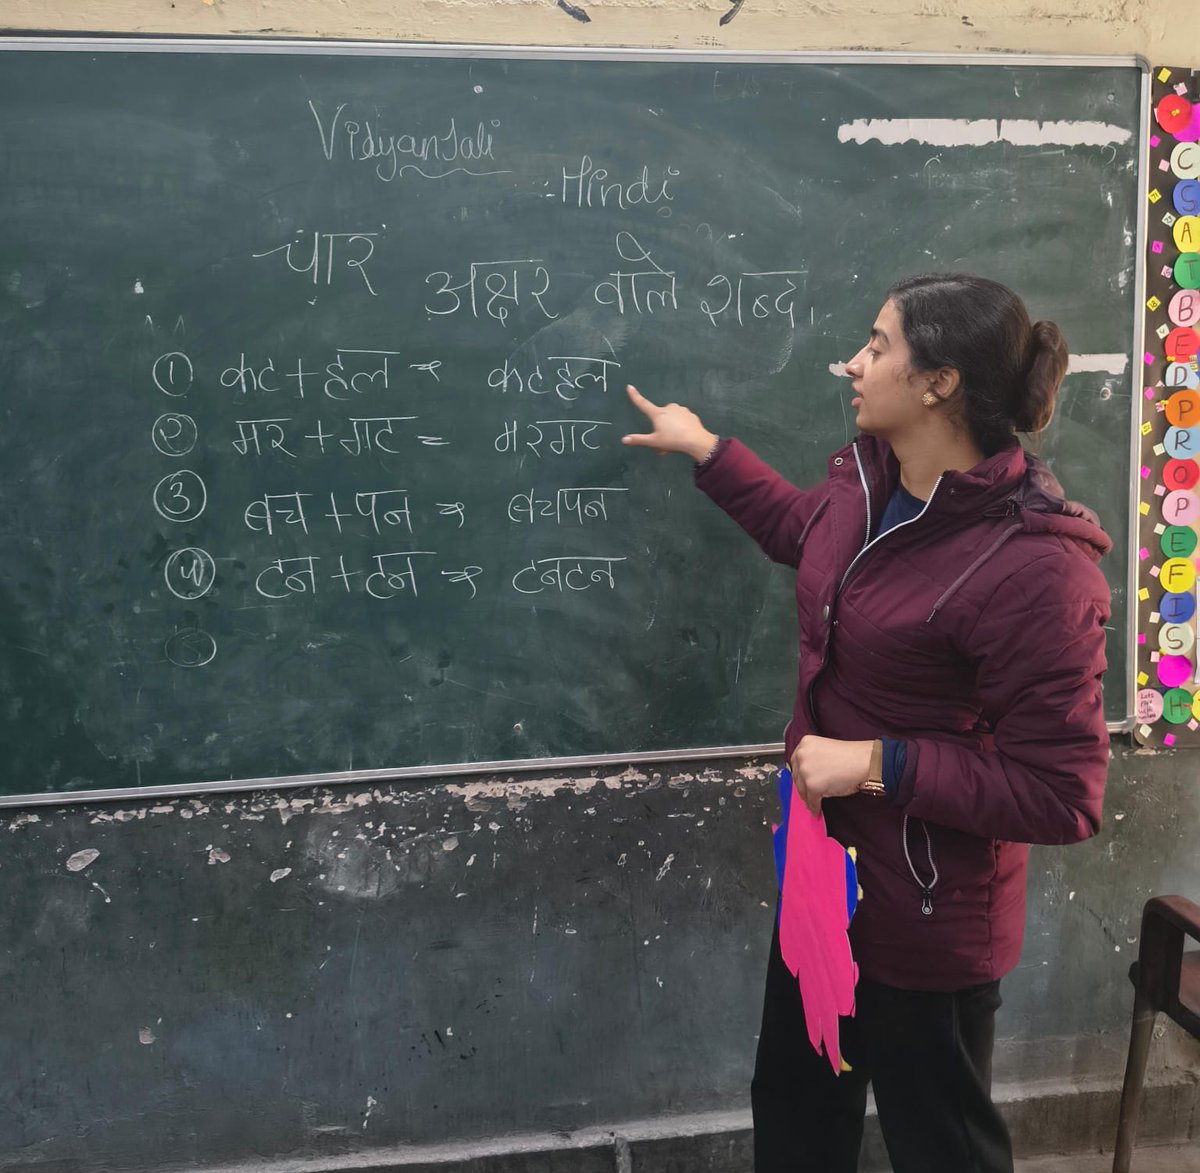 Vidyanjali
Hindi
चार अक्षर वाले शब्द।
① कट + हल = कटहल
② मर + गट = मरगट
③ बच + पन = बचपन
④ टन + टन = टनटन
⑤
C
S
A
T
B
E
D
P
R
O
P
E
F
I
S
H